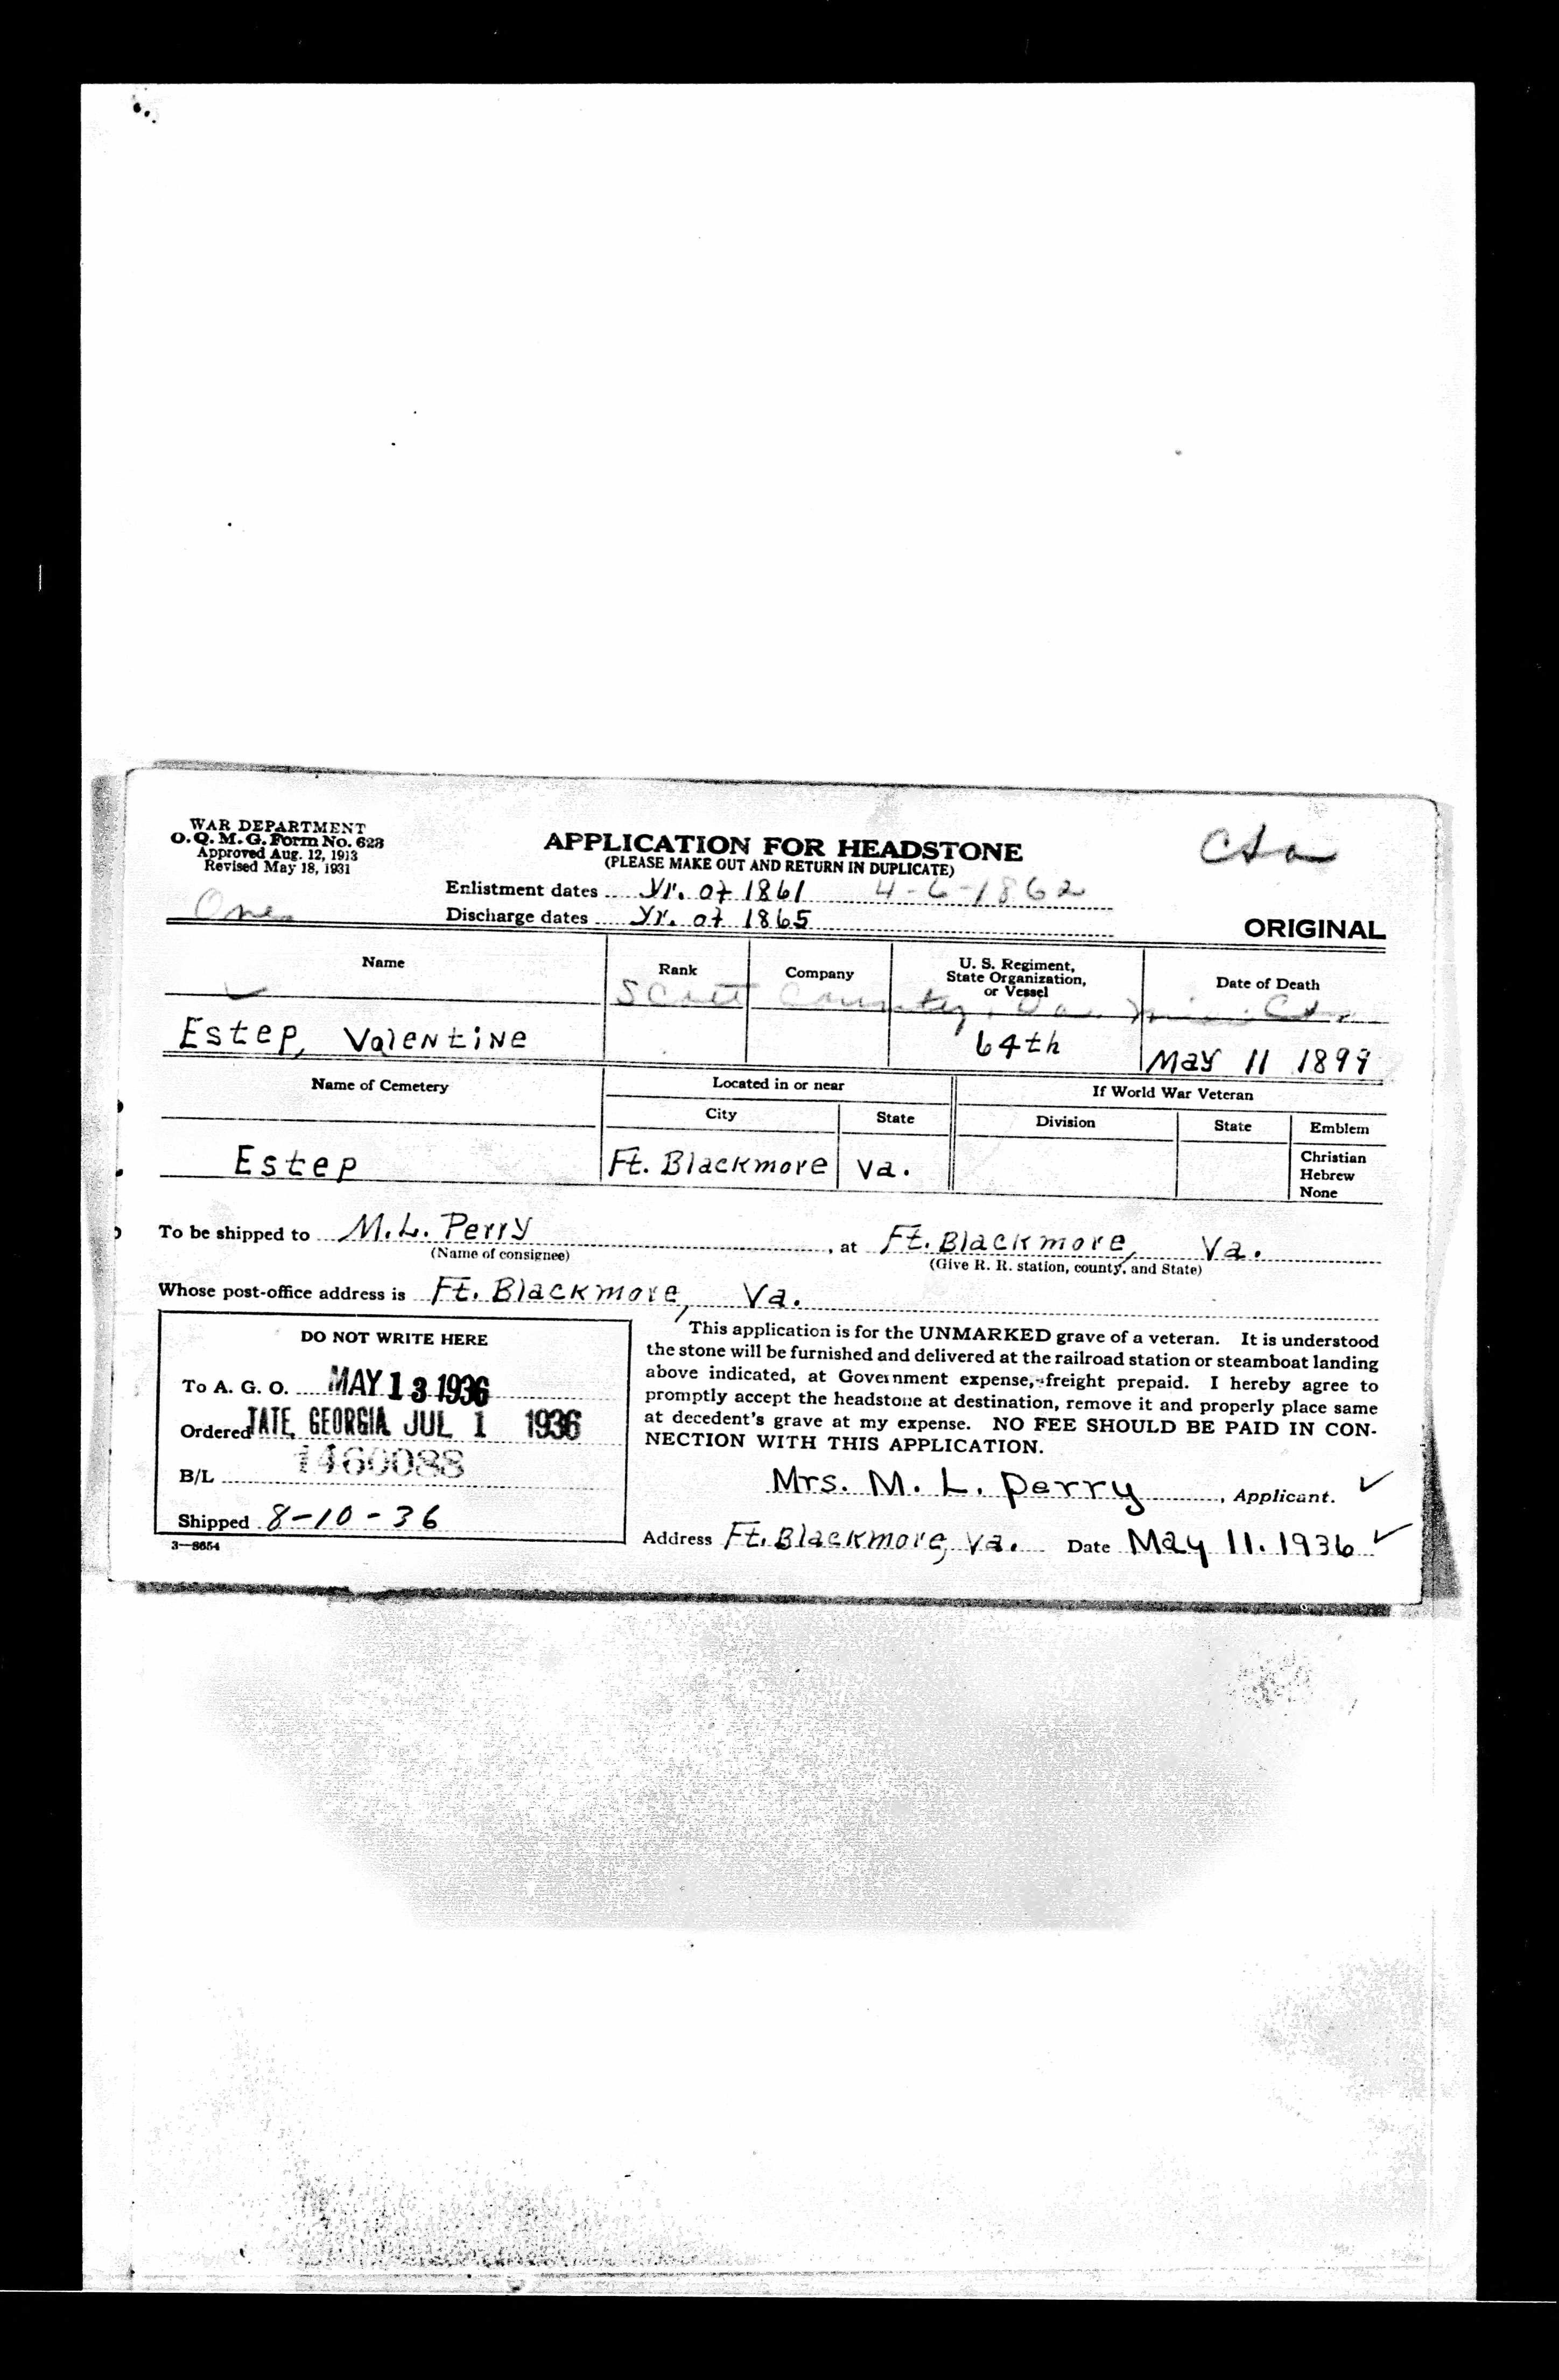 WAR DEPARTMENT
O. Q. M. G. Form No. 623
Approved Aug. 12, 1913
Revised May 18, 1931
APPLICATION FOR HEADSTONE
(PLEASE MAKE OUT AND RETURN IN DUPLICATE)
Enlistment dates Yr. of 1861 4-6-1862
One
Discharge dates Yr. of 1865
ORIGINAL
Name Rank Company U. S. Regiment, State Organization, or Vessel Date of Death
Scott County, Va.
Estep, Valentine 64th May 11 1899
Name of Cemetery Located in or near If World War Veteran
City State Division State Emblem
Estep Ft. Blackmore Va. Christian
Hebrew
None
To be shipped to M. L. Perry, at Ft. Blackmore, Va.
(Name of consignee) (Give R. R. station, county, and State)
Whose post-office address is Ft. Blackmore, Va.
DO NOT WRITE HERE
To A. G. O. MAY 13 1936
Ordered TATE, GEORGIA JUL 1 1936
B/L 1460088
Shipped 8-10-36
3—8654
This application is for the UNMARKED grave of a veteran. It is understood
the stone will be furnished and delivered at the railroad station or steamboat landing
above indicated, at Government expense, freight prepaid. I hereby agree to
promptly accept the headstone at destination, remove it and properly place same
at decedent's grave at my expense. NO FEE SHOULD BE PAID IN CON-
NECTION WITH THIS APPLICATION.
Mrs. M. L. Perry, Applicant.
Address Ft. Blackmore, Va. Date May 11. 1936